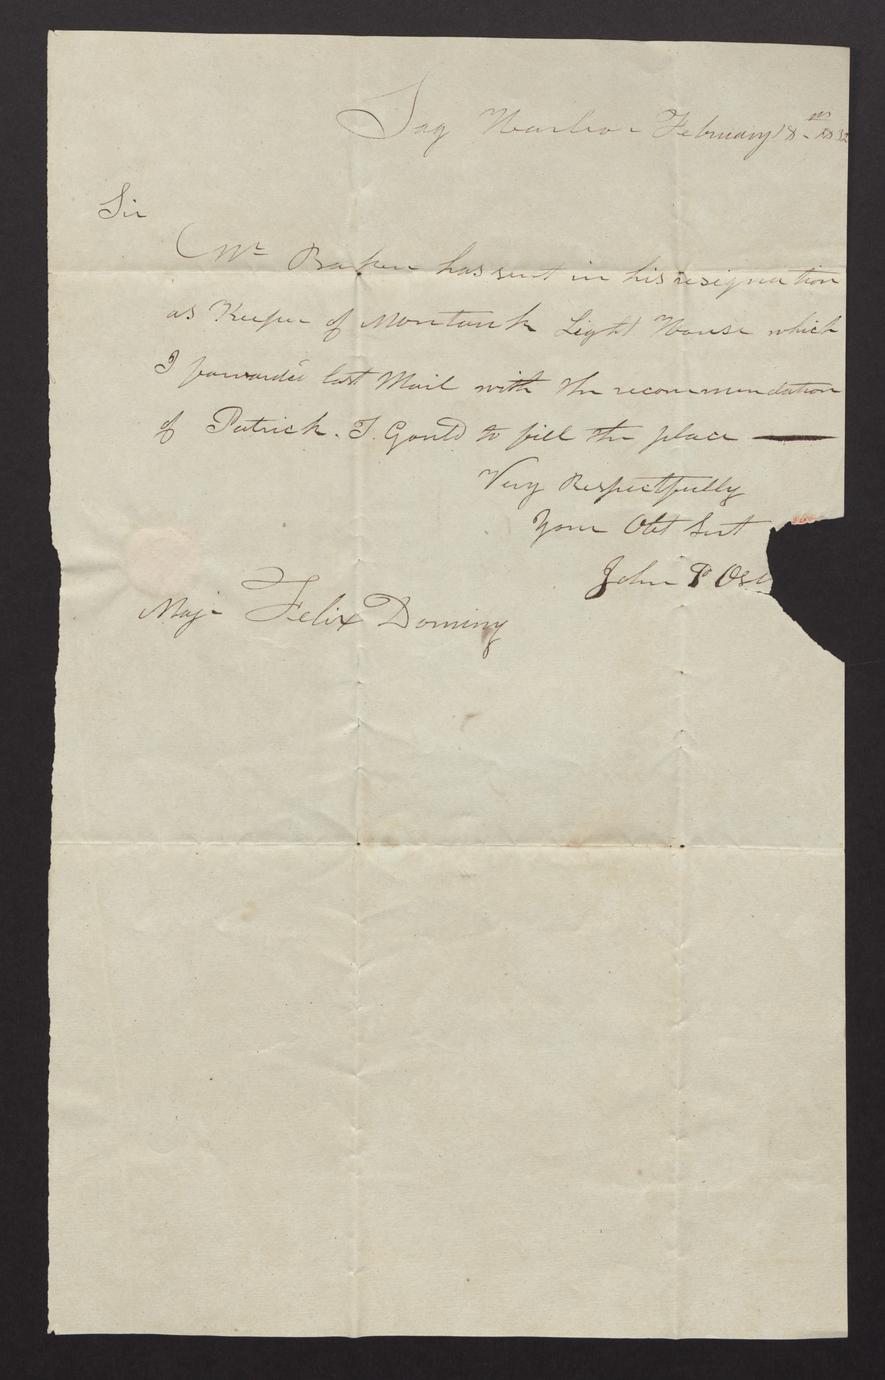 Sag Harbor February 18th 1832
Sir
Mr Baker has sent in his resignation
as Keeper of Montauk Light House which
I forwarded last Mail with the recommendation
of Patrick. T. Gould to fill the place —
Very Respectfully
Your Obt Servt
John P Os
Maj- Felix Dominy